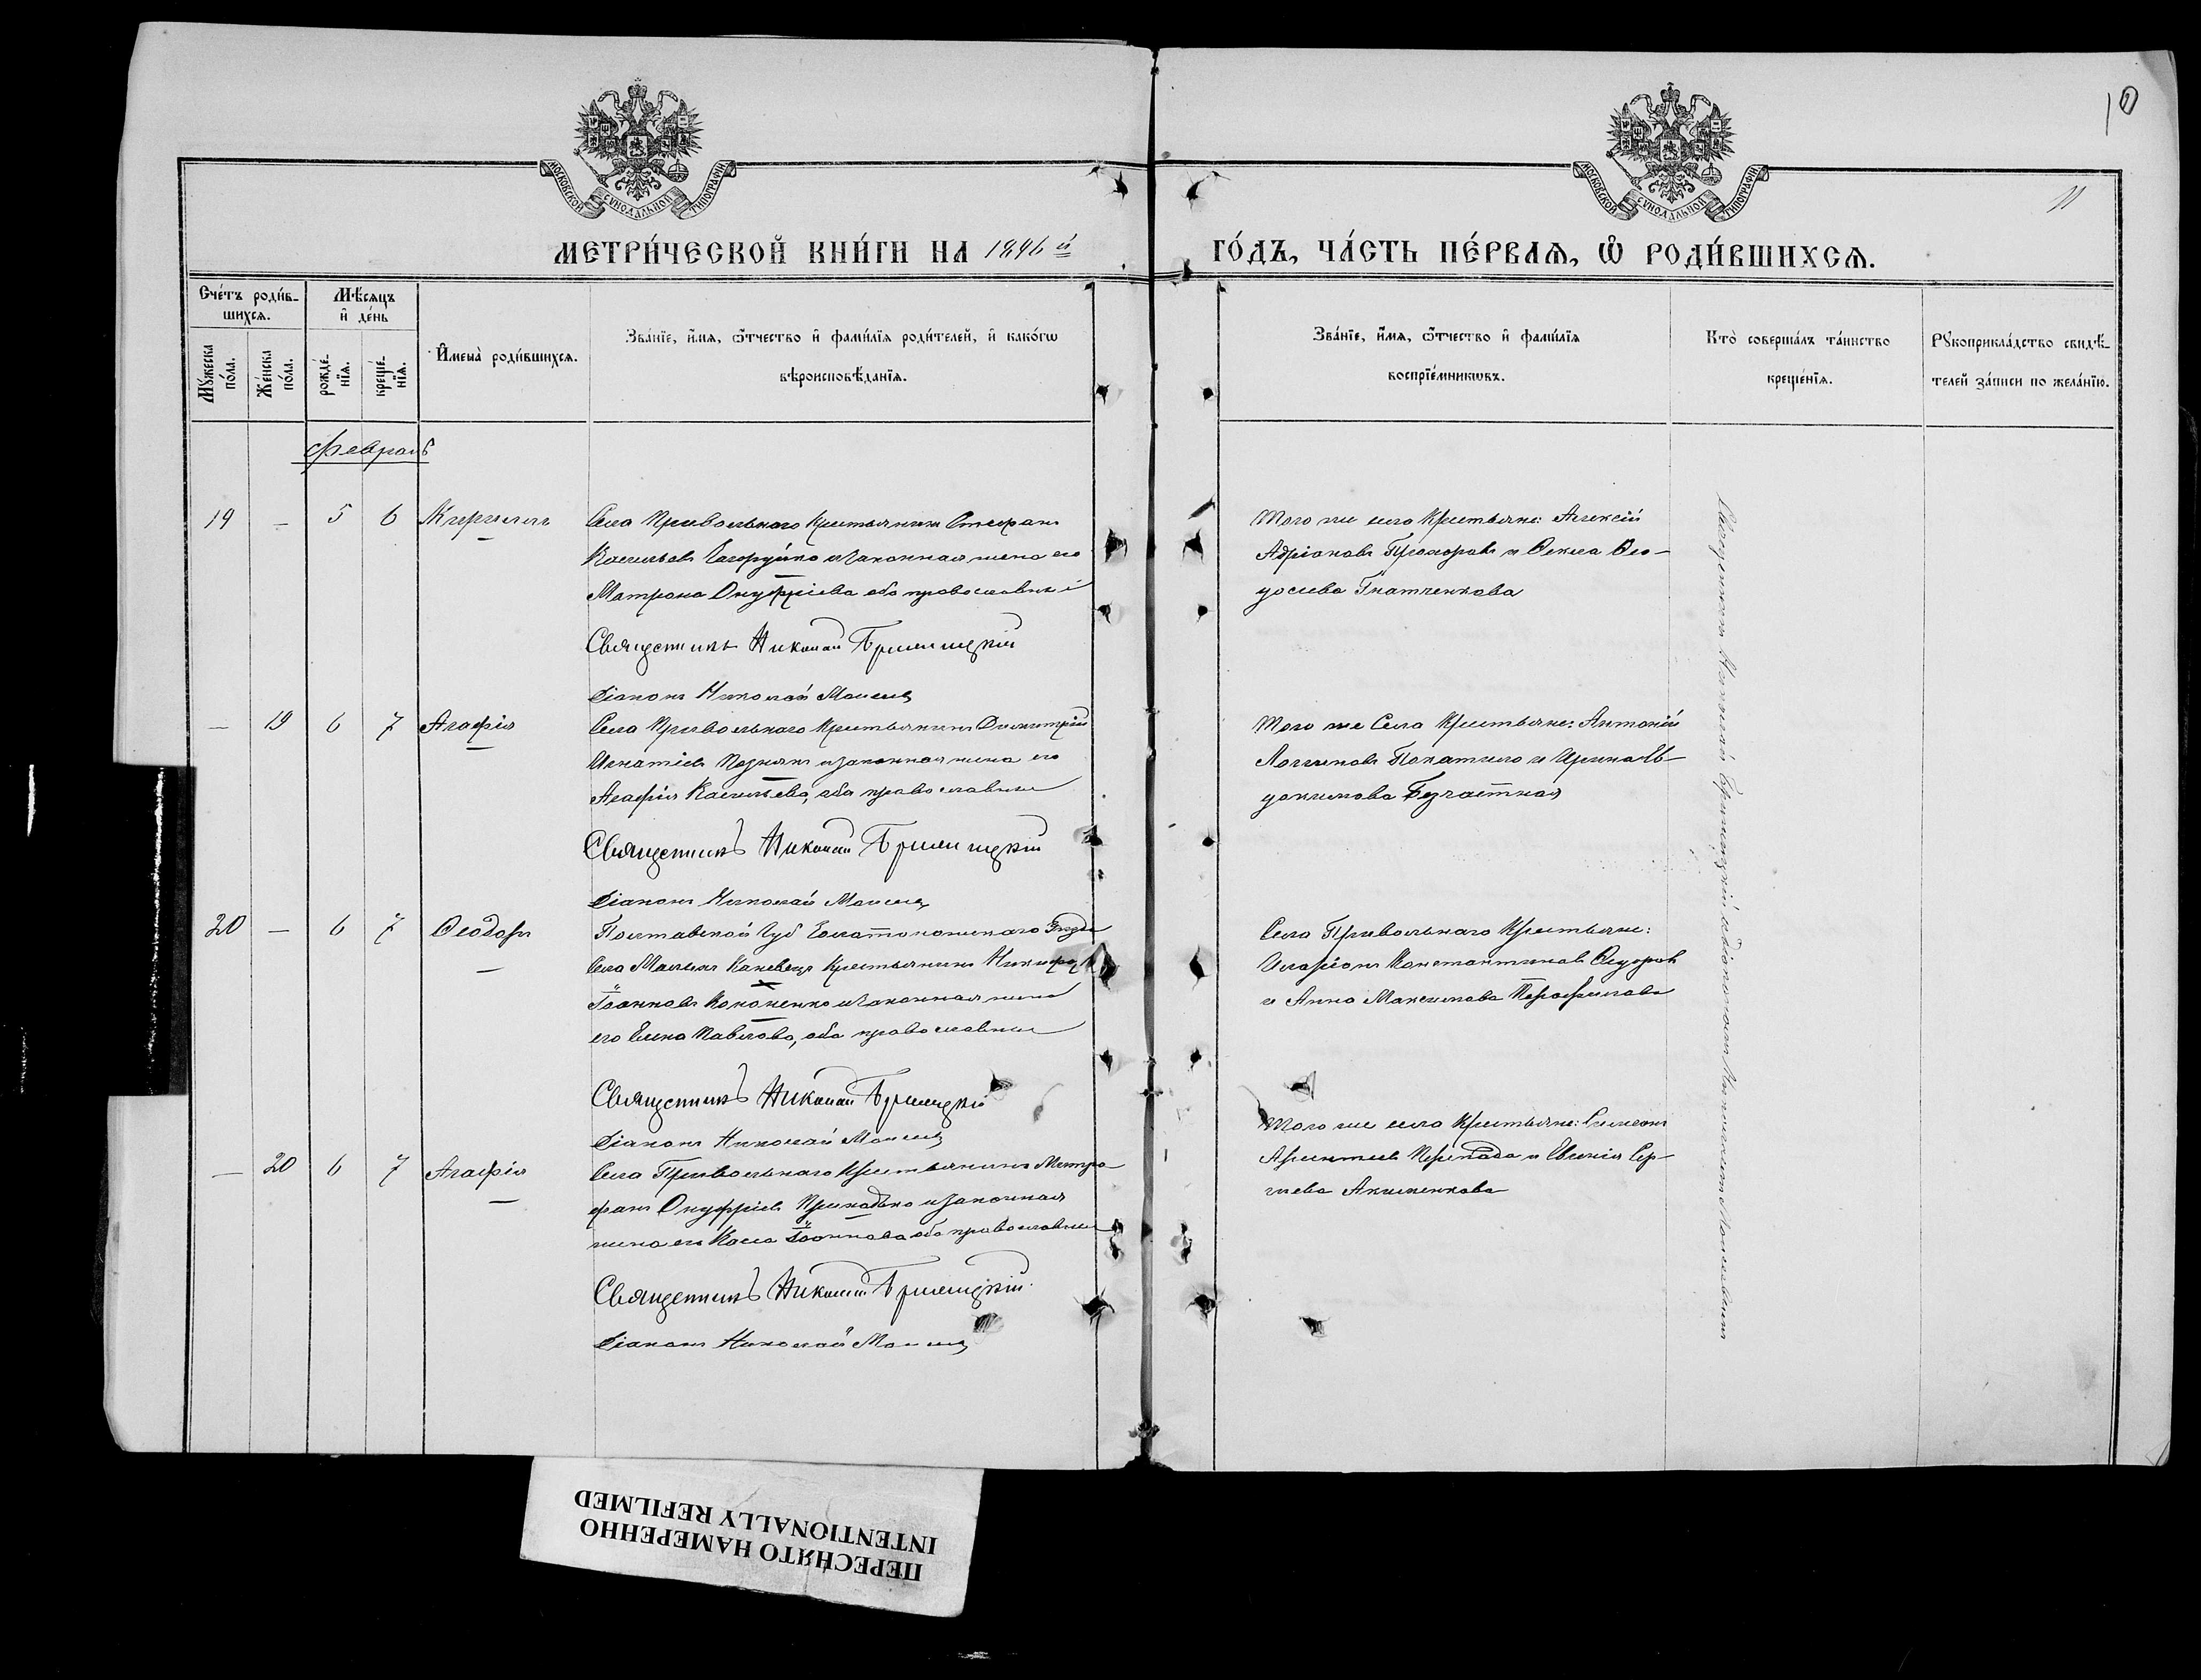 МОСКОВСКОЙ СУНОДАЛЬНОЙ ТИПОГРАФІИ
МОСКОВСКОЙ СУНОДАЛЬНОЙ ТИПОГРАФІИ
10
11
МЕТРИ́ЧЕСКОЙ КНИ́ГИ НА 1896 й
ГО́ДЪ, ЧА́СТЬ ПЕ́РВАѦ, Ѽ РОДИ́ВШИХСѦ.
Сче́тъ роди́в-
шихсѧ.
Мѣ́сѧцъ
и҆ де́нь
Мꙋ́жеска по́ла.
Же́нска по́ла.
рожде́-нїѧ.
креще́-нїѧ.
И҆мена̀ роди́вшихсѧ.
Зва́нїе, и҆́мѧ, ѻ҆́тчество и҆ фами́лїѧ роди́телей, и҆ како́гѡ
вѣроисповѣ́данїѧ.
Зва́нїе, и҆́мѧ, ѻ҆́тчество и҆ фами́лїѧ
воспрїе́мникѡвъ.
Кто̀ соверша́лъ та́инство
креще́нїѧ.
Рꙋкоприкла́дство свидѣ́-
телей за́писи по жела́нїю.
Февраль
19 — 5 6 Кириллъ
Села Привольнаго Крестьянинъ Стефанъ
Васильевъ Чагоруйко и законная жена его
Матрона Онуфріева оба православные
Священникъ Николай
Діаконъ Николай Моисеев
Того же села Крестьяне: Алексій
Адріановъ Прохоровъ и Ѳекла Ѳео-
досіева Гнатченкова
— 19 6 7 Агафія
Села Привольнаго Крестьянинъ Димитрій
Игнатіевъ Познякъ и законная жена его
Агафія Васильева, оба православные
Священникъ Николай
Діаконъ Николай Моисеев
Того же Села Крестьяне: Антоній
Логгиновъ и Ирина Ев-
докимова Безчастная
20 — 6 7 Ѳеодоръ
Полтавской Губ Золотоношскаго Уѣзда
Села Малыя Каневцы Крестьянинъ Никифоръ
Іоанновъ Кононенко и законная жена
его Елена Павлова, оба православные
Священникъ Николай
Діаконъ Николай Моисеев
Села Привольнаго Крестьяне:
Иларіонъ Константиновъ Ѳедоров
и Анна Максимова
— 20 6 7 Агафія
Села Привольнаго Крестьянинъ Митро-
фанъ Онуфріевъ Приходько и законная
жена его Васса Іоаннова оба православные
Священникъ Николай
Діаконъ Николай Моисеев
Того же села Крестьяне: Симеонъ
и Евгенія Сер-
гіева Акименкова
Священникъ Николай съ діакономъ Николаемъ Моисеевымъ
ПЕРЕСНЯТО НАМЕРЕННО
INTENTIONALLY REFILMED